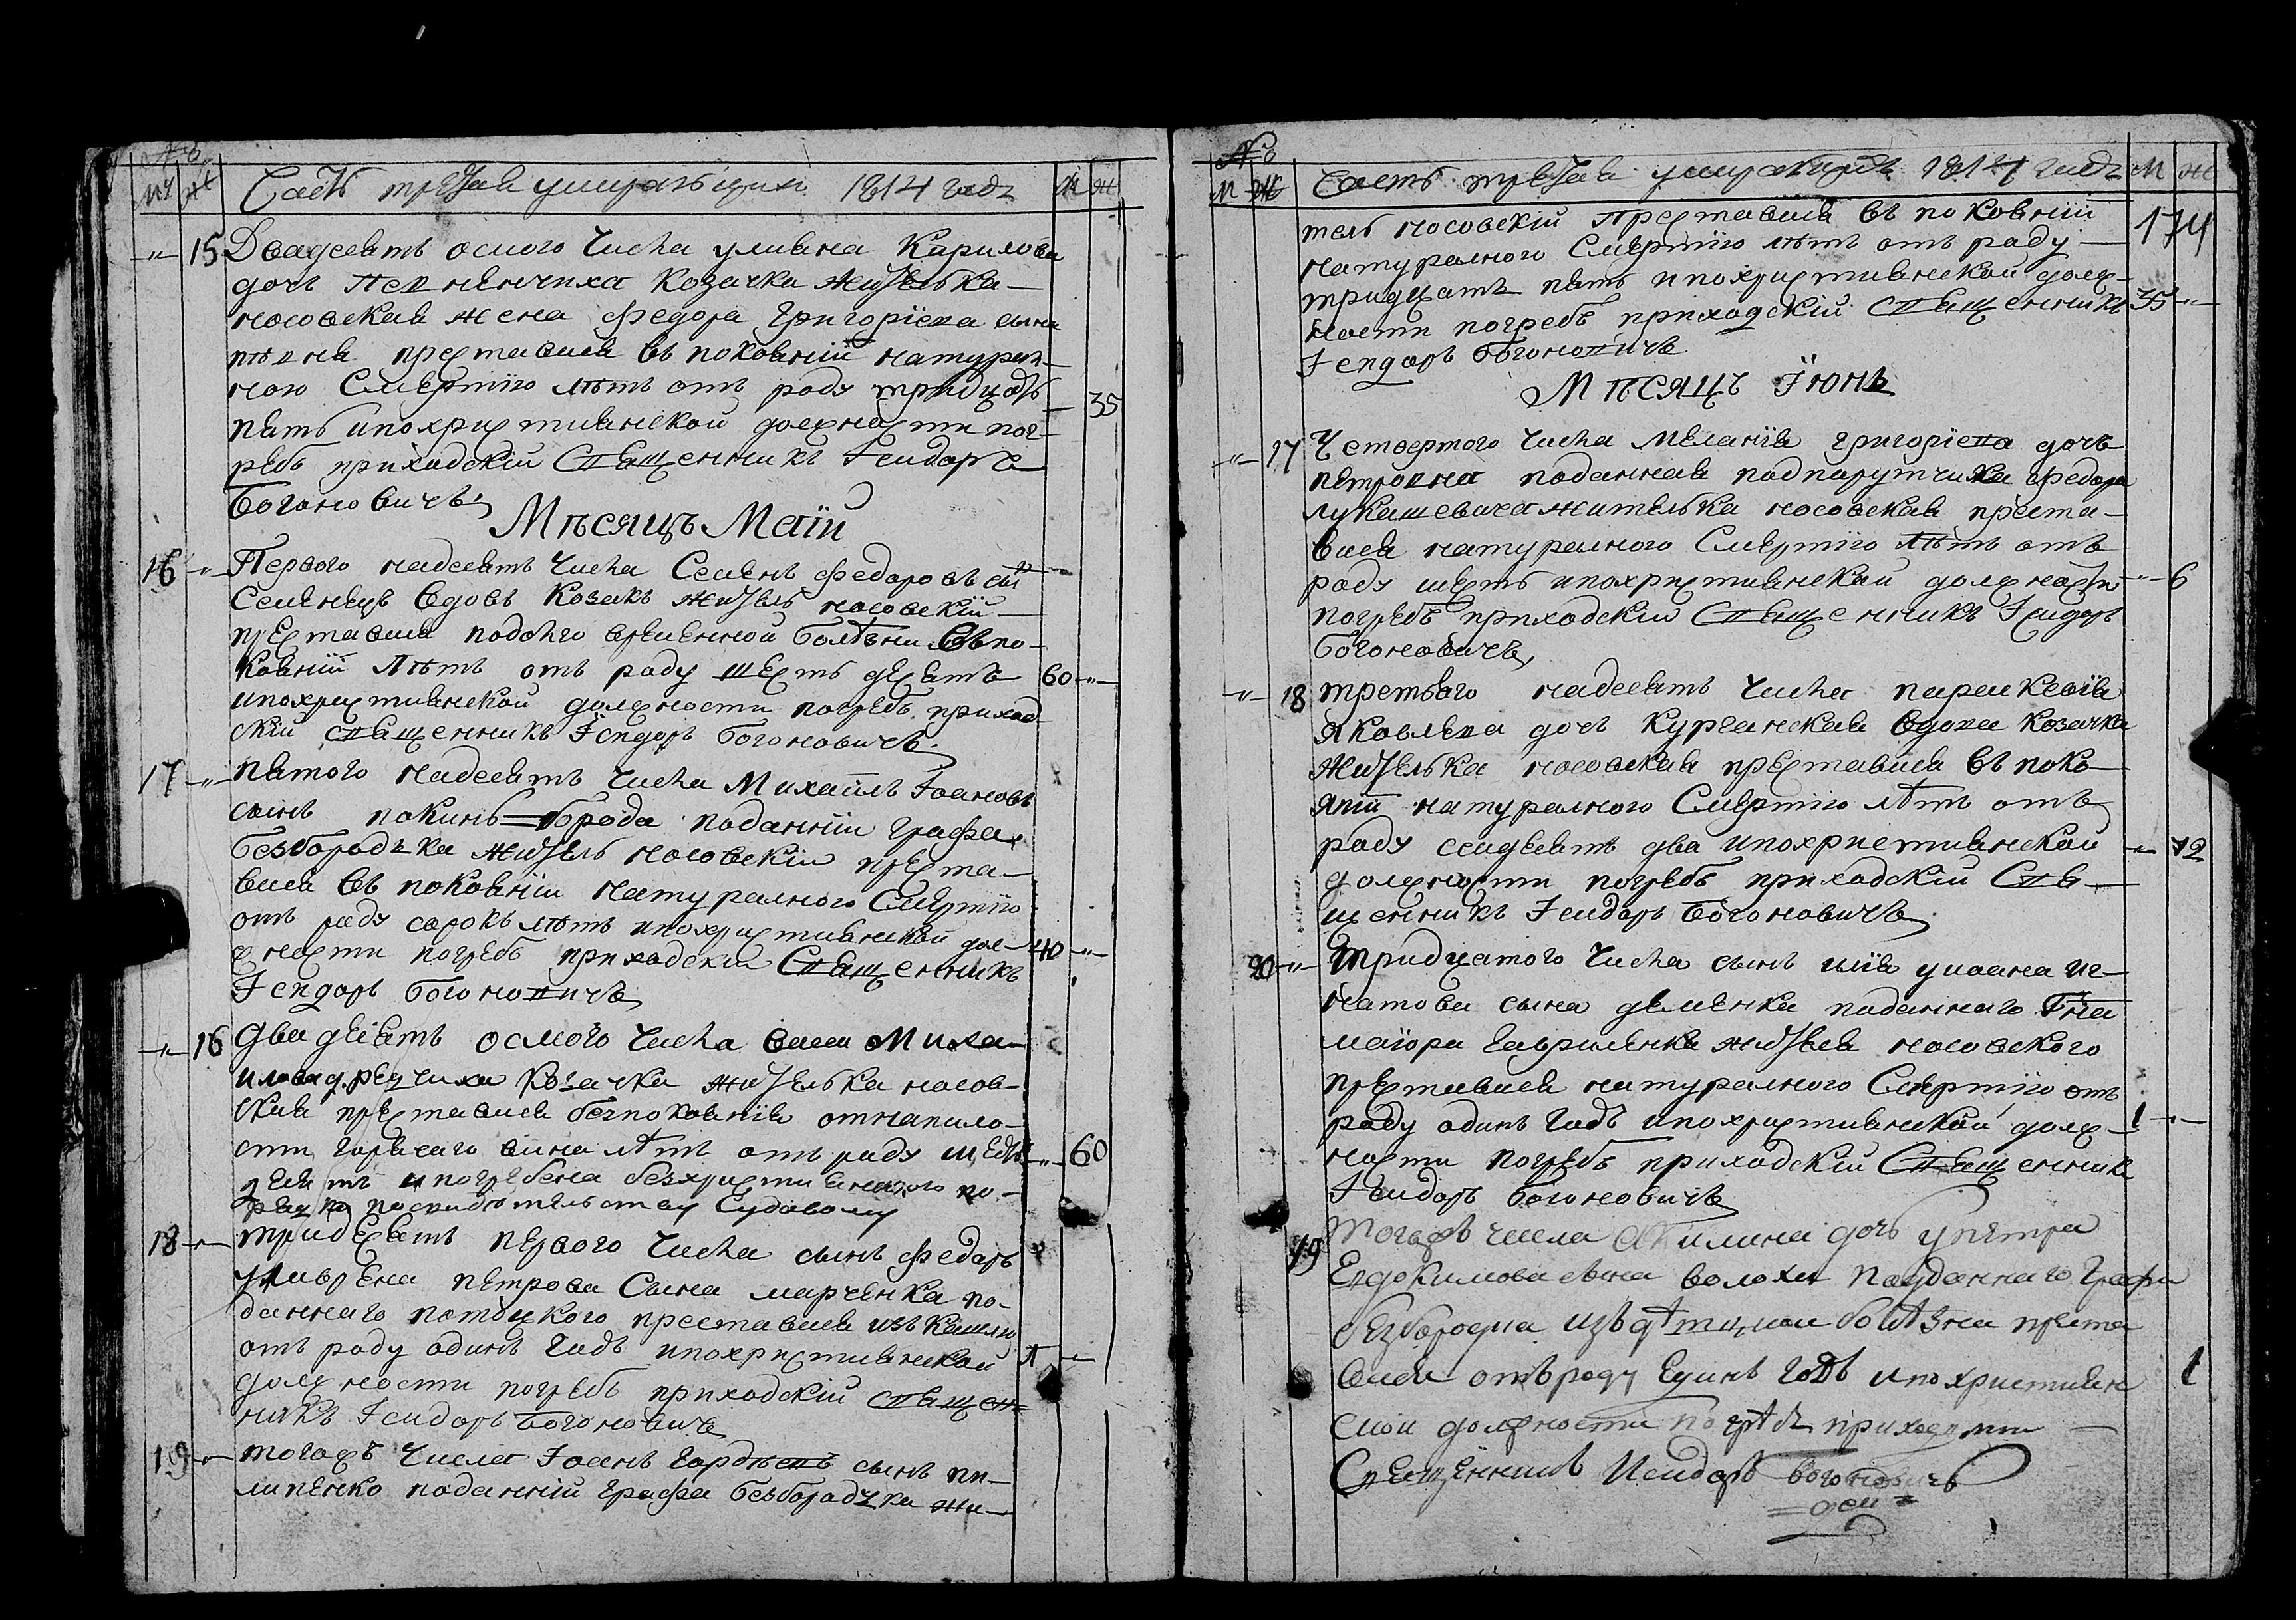 №
М Ж Часть третая умирающих 1814 годъ М Ж
15 Двадесятъ осмого числа улияна Карилова
дочъ козачка жителька
носовская жена Федора Григоріева сына
преставися въ покояніи натурал
ною смертію лѣтъ отъ роду тридцать
пять ипохристиянской должности пог 35
ребъ приходскій священникъ Ісидоръ
Богоновичъ
Мѣсяцъ Маій
16 Первого надесятъ числа Семенъ Федоровъ сы
Семенецъ вдовъ козакъ житель носовскій
преставися подолговременной болѣзни въ по
кояніи лѣтъ отъ роду шестъ десятъ 60
ипохристиянской должности погребъ приход
скій священникъ Ісидоръ Богоновичъ
17 пятого надесятъ числа Михаилъ Іоановъ
сынъ покинь=борода поданній графа
Безбородька житель носовскій преста
вися въ покояніи натуралного смертію
отъ роду сорокъ лѣтъ ипохристиянской дол
жности погребъ приходскій священникъ 40
Ісидоръ Богоновичъ
16 Два десятъ осмого числа васса Миха
илова козачка жителька носов
ская преставися безпокоянія отнапило
сти горячаго вина лѣтъ отъ роду шесть 60
десятъ и погребена безхристиянского по
рядка посвидѣтельству Судовому
18 тридесятъ первого числа сынъ Федоръ
улаврена петрова сына марченка по
даннаго потоцкого преставися изъ кашлю
отъ роду одинъ годъ ипохристиянской 1
должности погребъ приходскій священ
никъ Ісидоръ Богоновичъ
19 тогожъ числа Іоанъ Гордѣевъ сынъ пи
липенко поданній графа безбородька жи
№
М Ж Часть третая умирающихъ 1814 годъ М Ж
174
тель носовскій Преставися въ покояніи
натуралного смертію лѣтъ отъ роду
тридцатъ пять ипохристиянской долж
ности погребъ приходскій священникъ 35
Ісидоръ Богоновичъ
Мѣсяцъ Іюнь
17 Четвертого числа меланія григоріева дочъ
петровна поданная подпарутчика Федора
лукашевича жителька носовская преста
вися натуралного смертію лѣтъ отъ
роду шесть ипохристиянской должности 6
погребъ приходскій священникъ Ісидоръ
Богоновичъ
18 третього надесятъ числа параскевія
яковлева дочъ курганская вдова козачка
жителька носовская преставися въ пока
яніи натуралного смертію лѣтъ отъ
роду семдесятъ два ипохристиянской 72
должности погребъ приходскій Свя
щенникъ Ісидоръ Богоновичъ
20 тридцатого числа сынъ илія улиана иг
натова сына деменка поданнаго Гна
маіора Гавриленка жителя носовского
преставися натуралного смертію отъ
роду одинъ годъ ипохристиянской долж 1
ности погребъ приходскій священник
Ісидоръ Богоновичъ
19 тогожъ числа Акилина дочъ упетра
Евдокимова сына волохи подданнаго графа
безбородка изъ болѣзни преста
вися отъ роду Единъ годъ ипохристиян 1
ской должности погрѣбъ приходскій
Священникъ Исидоръ Богоновичъ